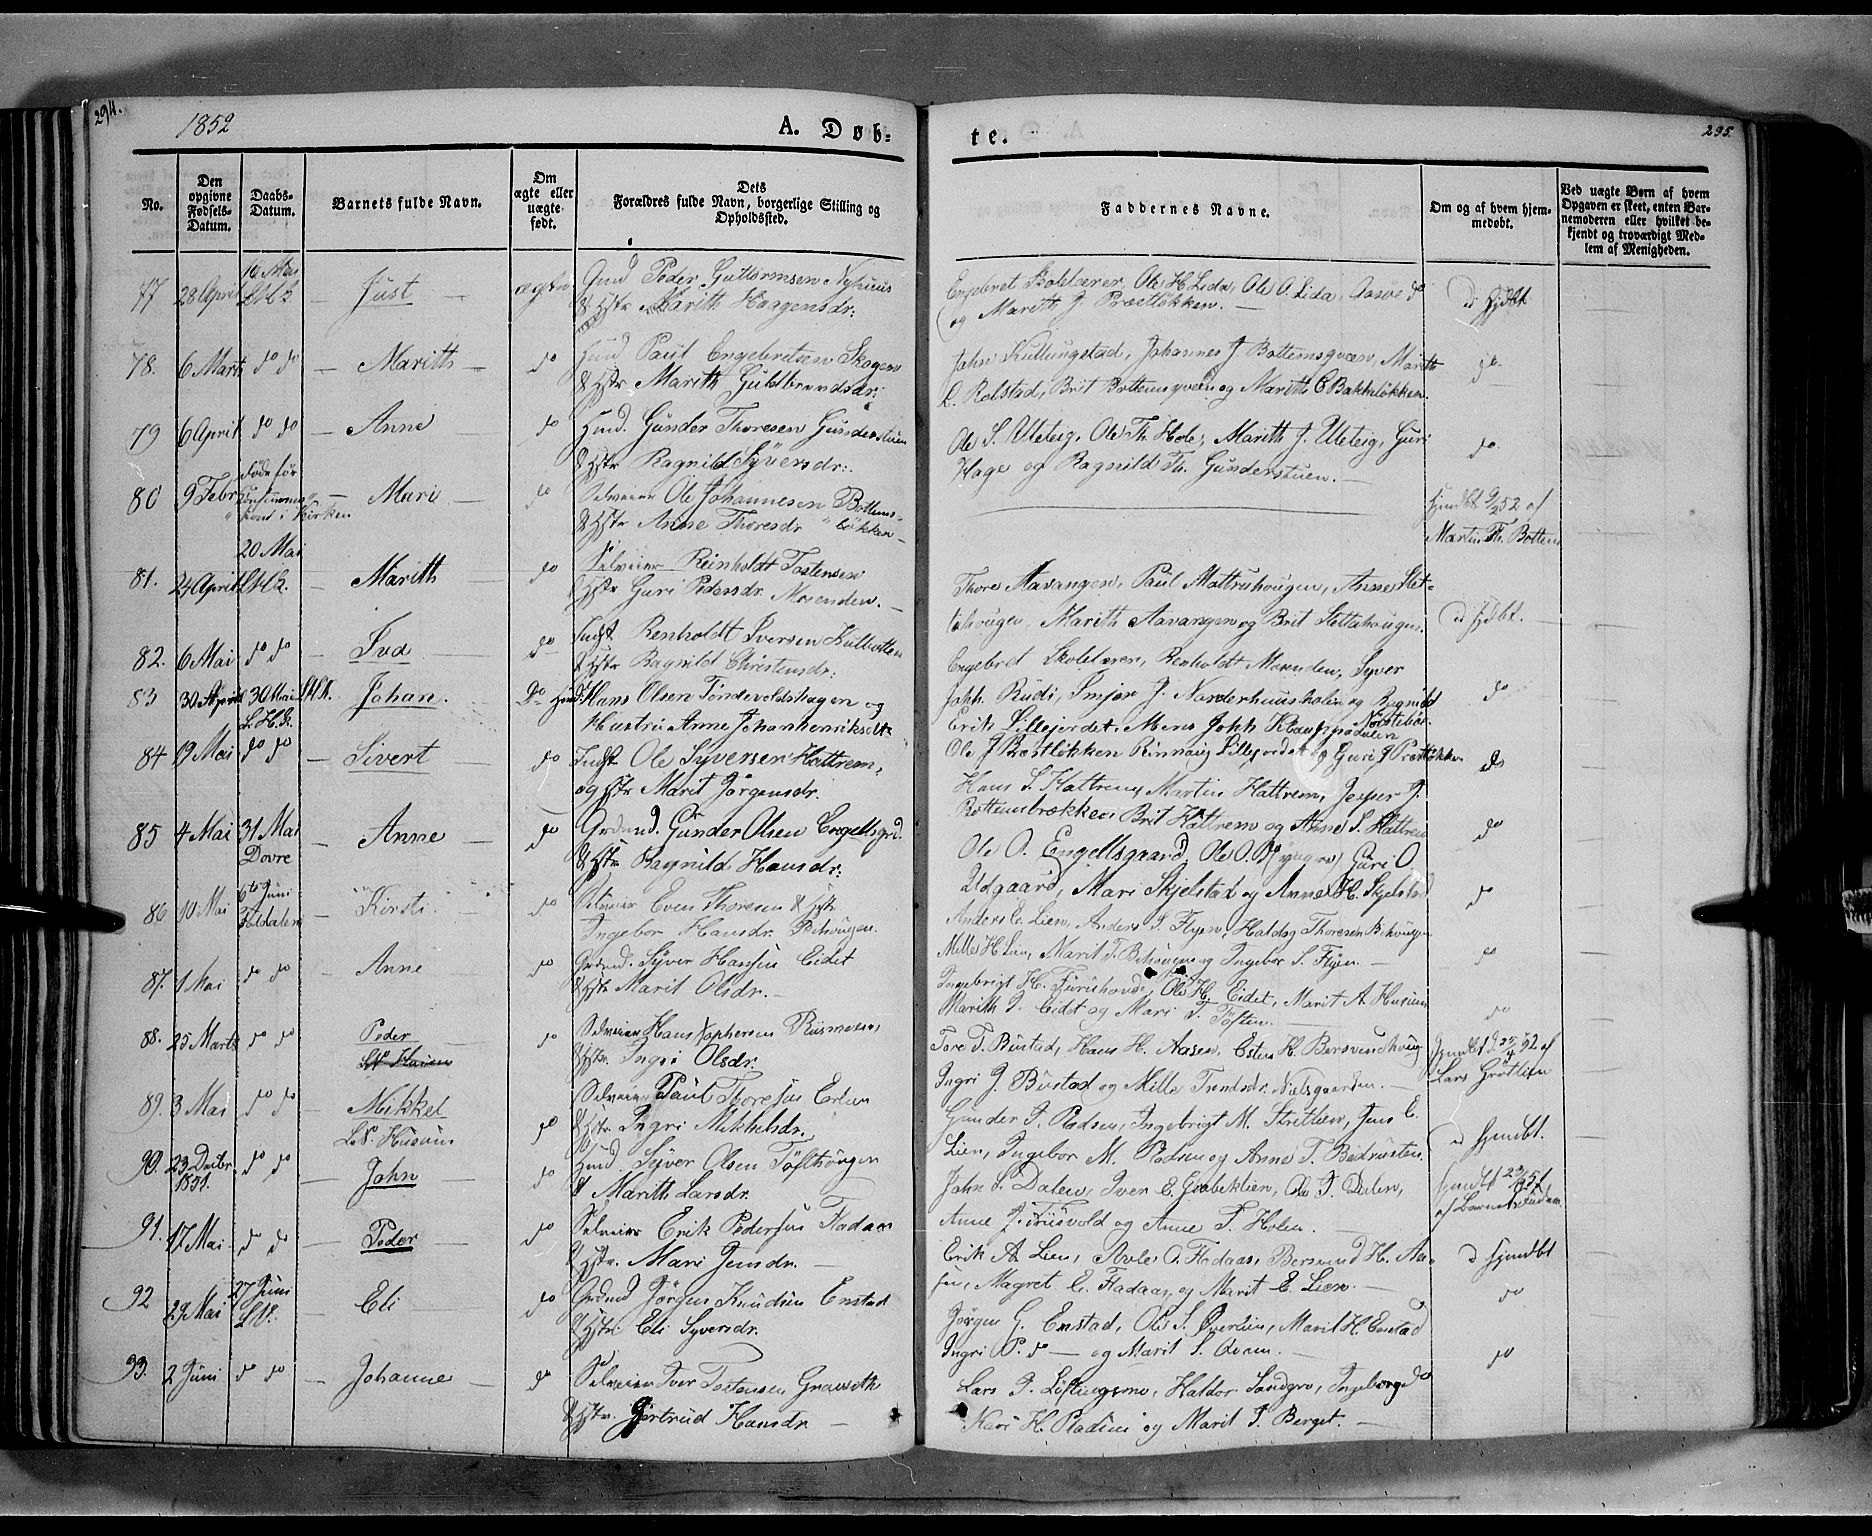 294.
1852
A. Døb-
te.
295.
No.
Den opgivne Fødsels-Datum.
Daabs-Datum.
Barnets fulde Navn.
Om ægte eller uægte født.
Dets Forældres fulde Navn, borgerlige Stilling og Opholdssted.
Faddernes Navne.
Om og af hvem hjem-medøbt.
Ved uægte Børn af hvem Opgaven er skeet, enten Bar-nemoderen eller hvilket be-kjendt og troværdigt Med-lem af Menigheden.
77 28 April 16 Mai Just ægte Peder Guttormsen Nyhuus
& Hstr Marith Haagensdr:
Engebret Skolelærer, Ole H Lida, Ole O. Lida, Aase do
og Marith J. Præstløkken. — hjdbt
78. 6 Marts do do — Marith — do Huusmd Paul Engebretsen Skogen
& Hstr Marith Guldbrandsdr:
John Kullungstad, Johannes J Bottemsqvæn, Marith
Rolstad, Brit Bottemsqvæn og Marith Bakkeløkken. do
79 6 April do do — Anne do Huusmd. Gunder Thoresen Gunderstuen
& Hstr Ragnild Syversdr:
Ole S. Uleteig, Ole Th. Hole, Marith J. Uleteig, Guri
Hage og Ragnild Th. Gunderstuen. — do
80 9 Febr døde før — Mari — do Selveier Ole Johannesen Bottems-
i Kirken & Hstr Anne Thoresdr løkken —
hjmdbt 9/2 52 af
Martin Th. Bottem
81. 24 April 20 Mai — Marith — do Selveier Reinholdt Tostensen
& Hstr Guri Pedersdr. Mosenden. —
Thore Aavangen, Paul Mattruhougen, Anne Slet-
tahougen, Marith Aavangen og Brit Slettahougen. hjdbt. —
82. 6 Mai do do — Iva do Indst Renholdt Iversen
& Hstr Ragnild Christensdr:
Engebret Skolelærer, Renholdt Mosenden, Syver
Joh. Rudi, J. Norderhuusholen og Ragnild do
83 30 April 30 Mai L.H.k. Johan. Do Hans Olsen Tøndevoldshagen og
Hustru Anne Johanhenriksdt
Erik Lillejordet, Mons Joh Nørstebø
Ole J Præstløkken Rinnaug Lillejordet og Guri J Præstløkken do
84 19 Mai do do — Sivert do Indst Ole Syversen Hattrem,
og Hstr Marit Jørgensdr.
Hans S. Hattrem, Martin Hattrem, Jesper J.
Bottembrækken, Brit Hattrem og Anne S. Hattrem do
85 4 Mai 31 Mai Dovre — Anne do Grdmd. Gunder Olsen Engelsgrd.
& Hstr Ragnild Hansdr:
Ole O. Engelsgaard, Ole O. (yngre), Guri O
Udgaard, Mari Skjelstad og Anne H. Skjelstad do
86 10 Mai 6te Juni — Kirsti. do Selveier Even Thoresen & Hstr
Ingebor Hansdr. Bihougen.
Anders E. Lien, Anders S. Flyen, Haldog Thoresen Bihougen
Mille H Lien, Marit T. Bihougen og Ingebor S. Flyen. — do
87. 1 Mai do do Anne do Grdmd. Syver Hansen Eidet
& Hstr Marit Olsdr. —
Ingebrigt H. Furuhovde, Ole H. Eidet, Marit A Husum
Marith J. Eidet og Mari T. Toften. do
88. 25 Marts do do Peder do Selveier Hans Rusmoen,
& Hstr. Ingri Olsdr.
Tore T. Bustad, Hans H. Aasen, Esten H. Bersvendhoug
Ingri J. Bustad og Mille Trondsdr. Nielsgaarden. — hjmdbt af
Lars Grøtlien
89. 3 Mai do do — Mikkel do Selveier Paul Thoresen
& Hstr. Ingri Mikkelsdr.
Gunder J. Pladsen, Ingebrigt M. Skotlien, Jens E.
Lien, Ingebor M. Pladsen og Anne T. hjemdbt.
90. 23 Decbr. 1851. do do — John do Huusmd. Syver Olsen Tofthougen
& Marith Larsdr.
John S. Dalen, Iver E. Grabeklien, Ole J. Dalen,
Anne J. og Anne T. Holen. hjemdbt
91. 17 Mai do do — Peder do Selveier Erik Pedersen Fladaas
& Hstr. Mari Jensdr. —
Erik A Lien, O. Fladaas, Bersvend H. Aa-
sen, Magret E. Fladaas, og Marit E. Lien. — hjemdbt
92 29 Mai 27 Juni Eli — do Grdmd Jørgen Knudsen Enstad
& Hstr: Eli Syversdr.
Jørgen G. Enstad, Ole S. Øverlien, Marit H. Enstad
Ingri P. do — og Marit S. Qvam. — do
93. 2 Juni do do — Johanne — do Selveier Iver Tostensen
& Hstr. Gjertrud Hansdr. —
Lars J. Løftingsmo, Haldor Sandgro, Ingeborg do
Kari H. Pladsen og Marit J. Berget. —